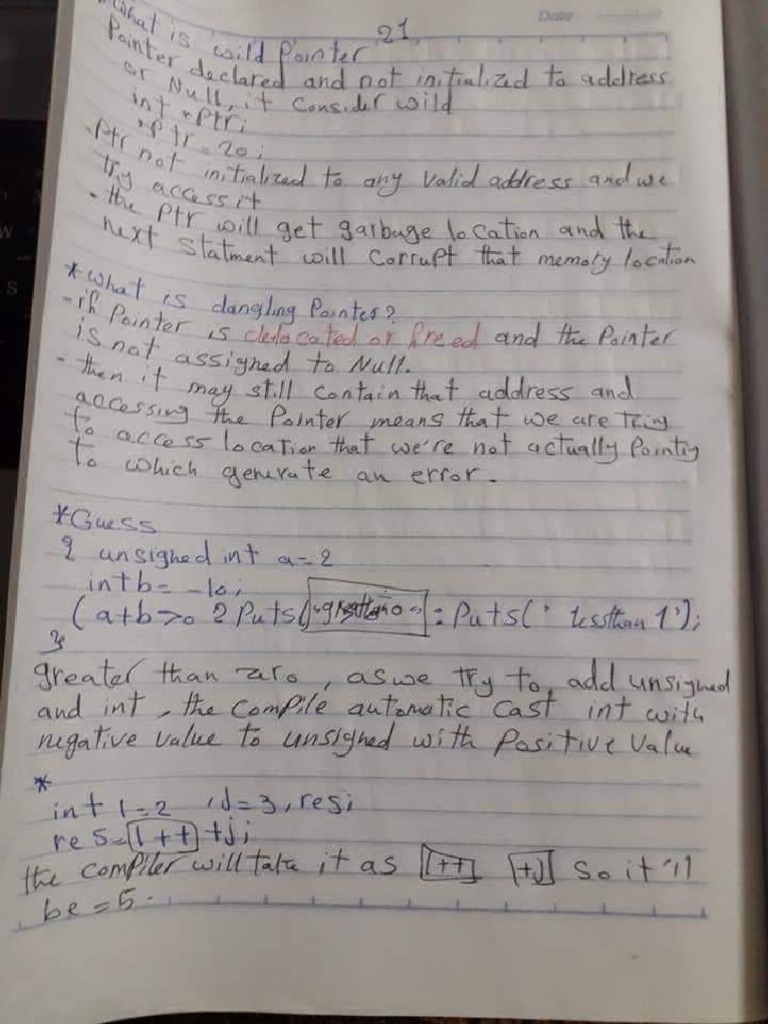 21
Date
What is wild Pointer
Pointer declared and not initialized to address
or Null, it Consider wild
int *Ptr;
*Ptr = 20;
-Ptr not initialized to any Valid address and we
try access it
- the Ptr will get garbage location and the
next Statment will Corrupt that memory location
*What is dangling Pointer?
-if Pointer is dedocated or freed and the Pointer
is not assigned to Null.
- then it may still contain that address and
accessing the Pointer means that we are tring
to access location that we're not actually Pointig
to which generate an error.
*Guess
{ unsigned int a=2
int b= -10;
(a+b>0 ? Puts( : Puts(" lessthan 1");
}
greater than zero, as we try to add unsigned
and int, the Compile automatic Cast int with
negative value to unsigned with Positive Value
*
int i=2 , j=3, res;
res=i+++j;
the compiler will take it as i++ +j So it'll
be = 5.